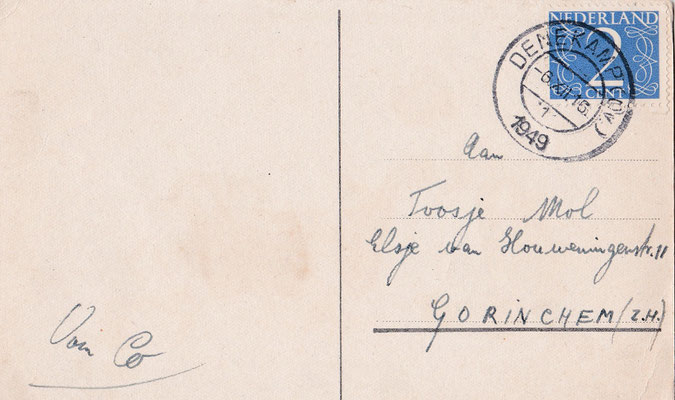 NEDERLAND
2
CENT
DENEKAMP (Ov)
1
1949
Aan
Toosje Mol
Elsje van Houweningenstr. 11
GORINCHEM (Z.H.)
Van Co